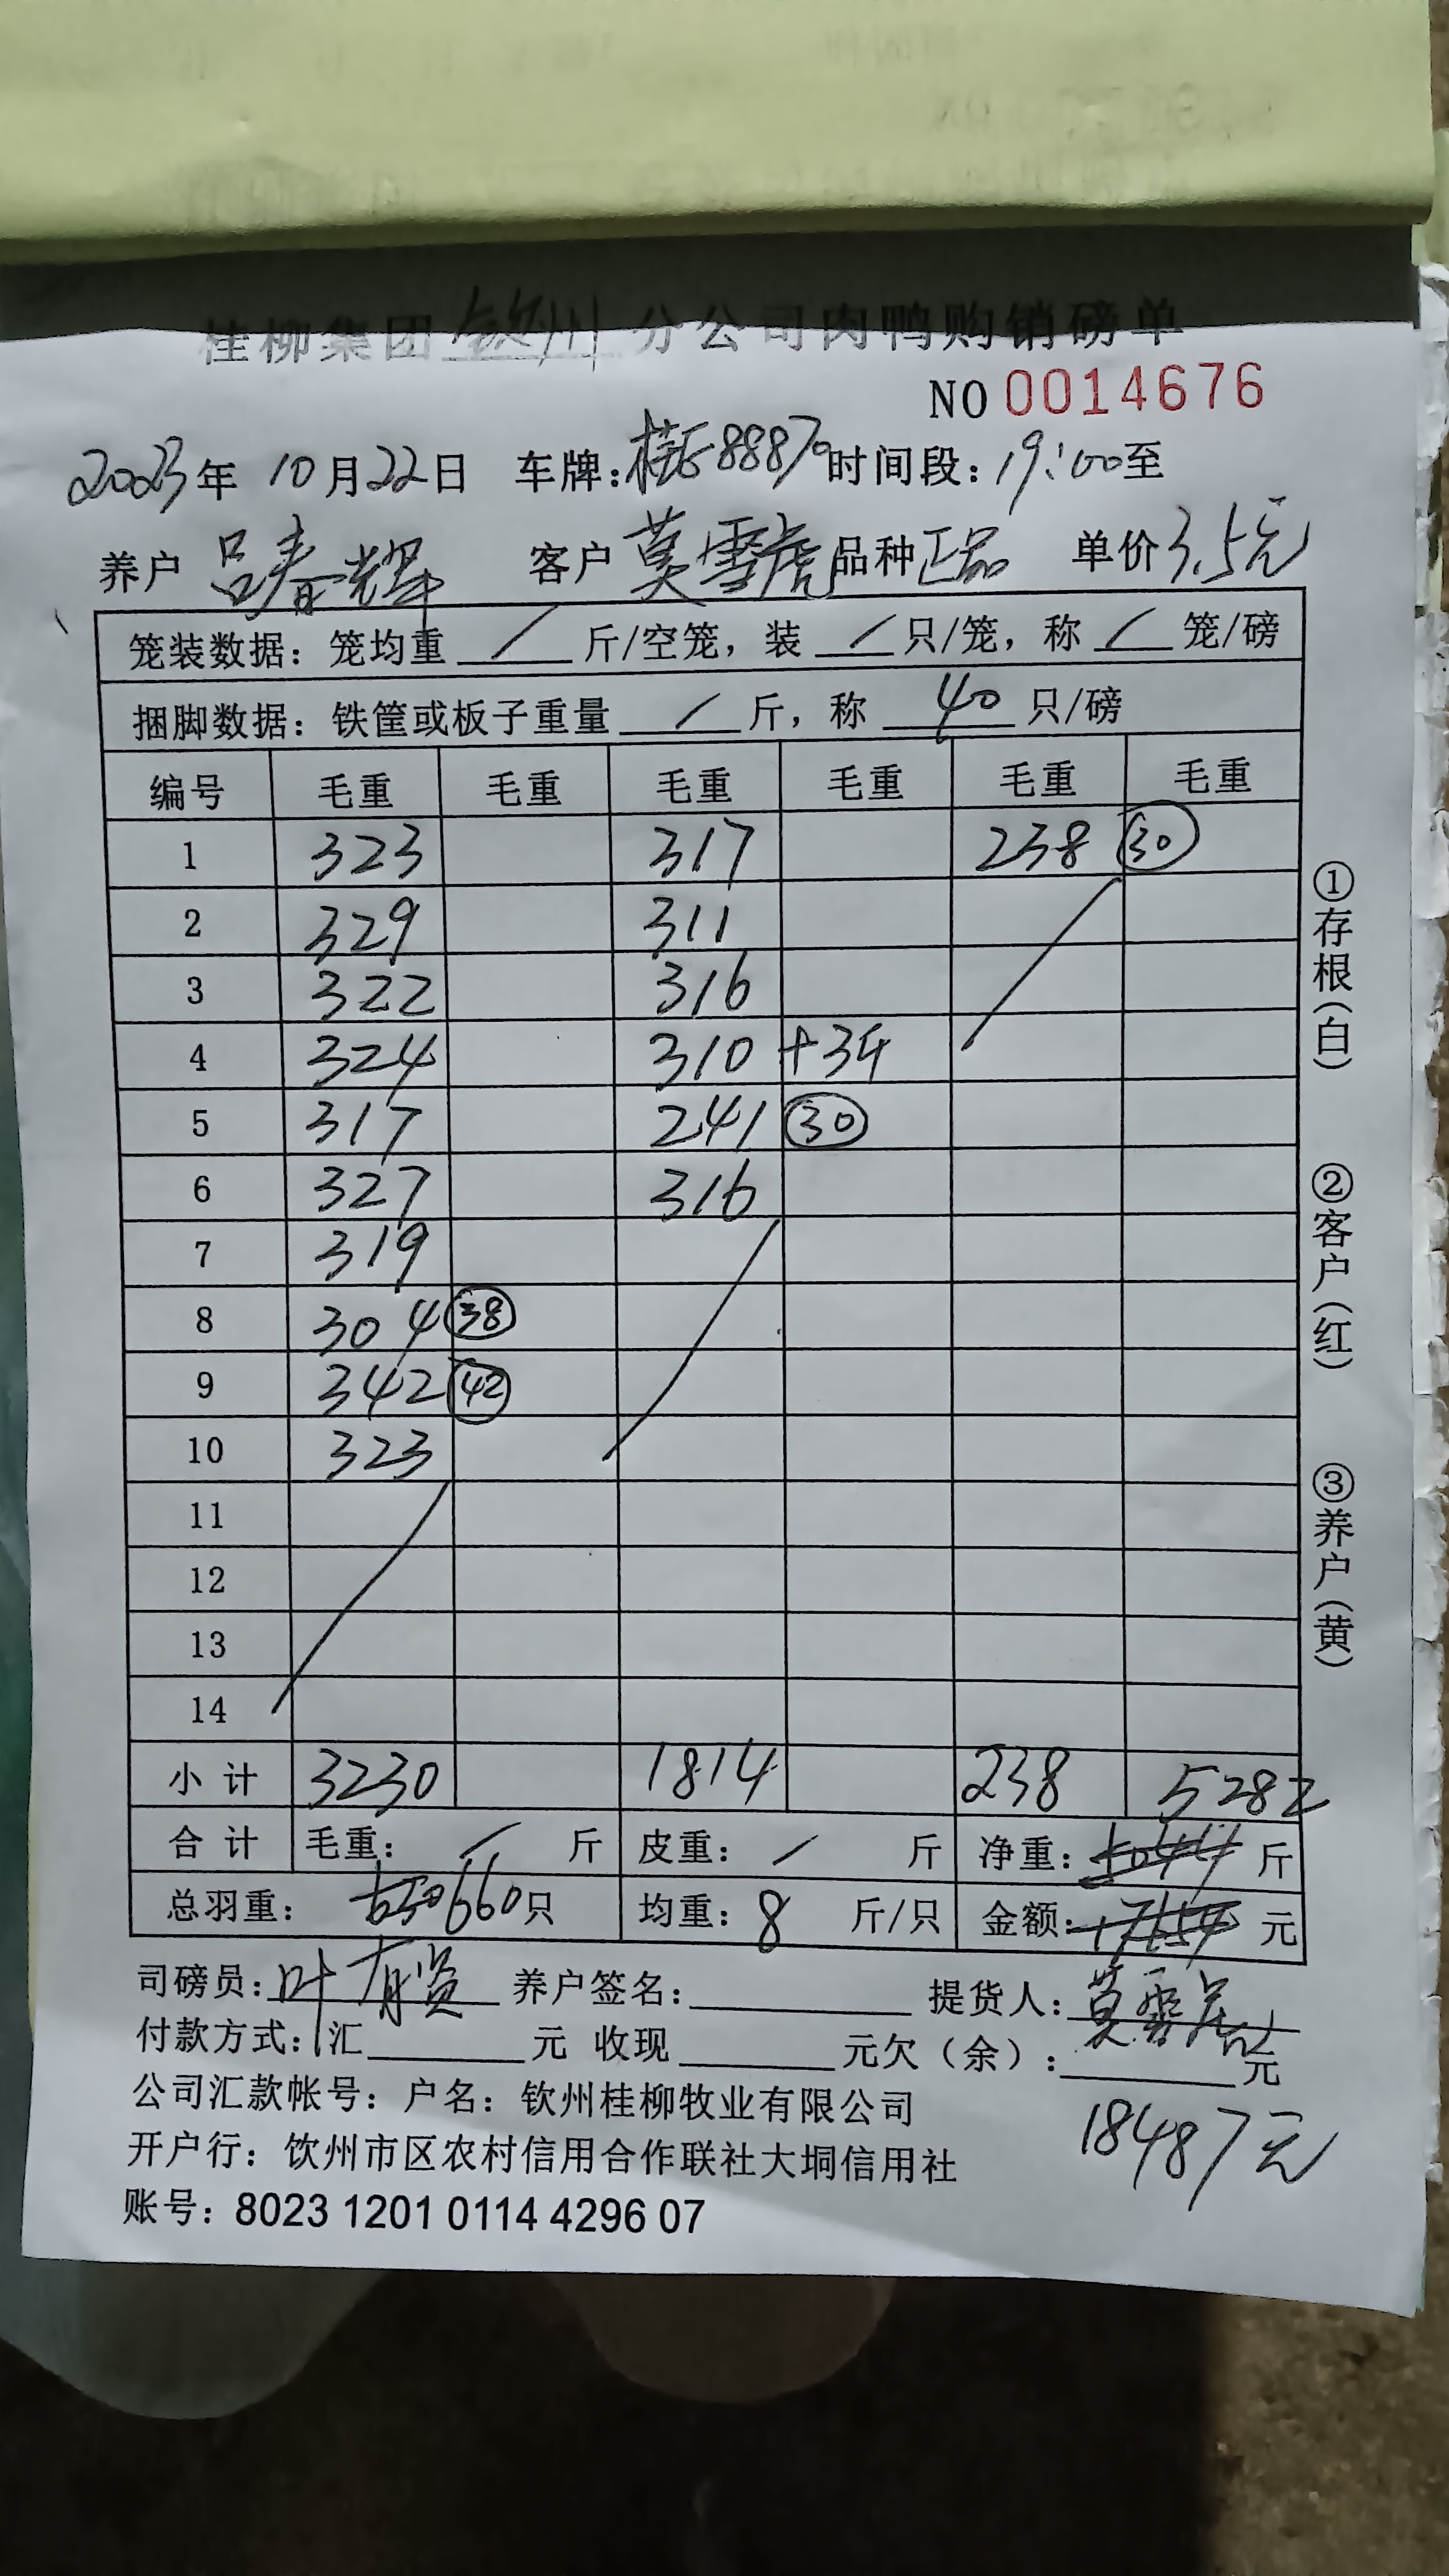 桂柳集团钦州分公司肉鸭购销磅单
NO 0014676
2023年 10月22日 车牌:桂E88870 时间段:19:00至
养户 吕春辉 客户 莫雪虎 品种 正品 单价 3.5元
笼装数据: 笼均重 / 斤/空笼, 装 / 只/笼, 称 / 笼/磅
捆脚数据: 铁筐或板子重量 / 斤, 称 40 只/磅
编号 毛重 毛重 毛重 毛重 毛重 毛重
1 323 317 238 30
2 329 311
3 322 316
4 324 310 +34
5 317 241 30
6 327 316
7 319
8 304 38
9 342 42
10 323
11
12
13
14
小计 3230 1814 238 5282
合计 毛重: / 斤 皮重: / 斤 净重: 5044 斤
总羽重: 630 660只 均重: 8 斤/只 金额: 17654 元
司磅员: 叶有贤 养户签名: 提货人: 莫雪虎
付款方式: 汇 元 收现 元欠(余): 元
公司汇款帐号: 户名: 钦州桂柳牧业有限公司
18487元
开户行: 饮州市区农村信用合作联社大垌信用社
账号: 8023 1201 0114 4296 07
①存根(白)
②客户(红)
③养户(黄)